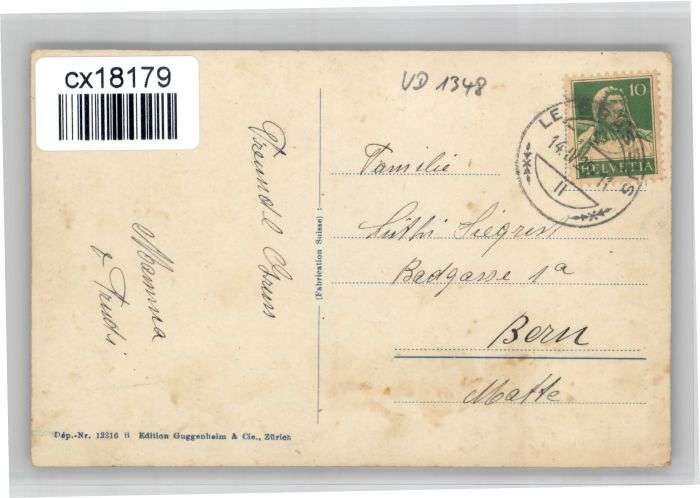 cx18179
VD 1348
10
HELVETIA
LE
14.
11
Freundl. Gruss
Mamma
& Trudi
(Fabrication Suisse)
Familie
Lüthi Siegrist
Badgasse 1a
Bern
Matte
Dép.-Nr. 12216 B Edition Guggenheim & Cie., Zürich